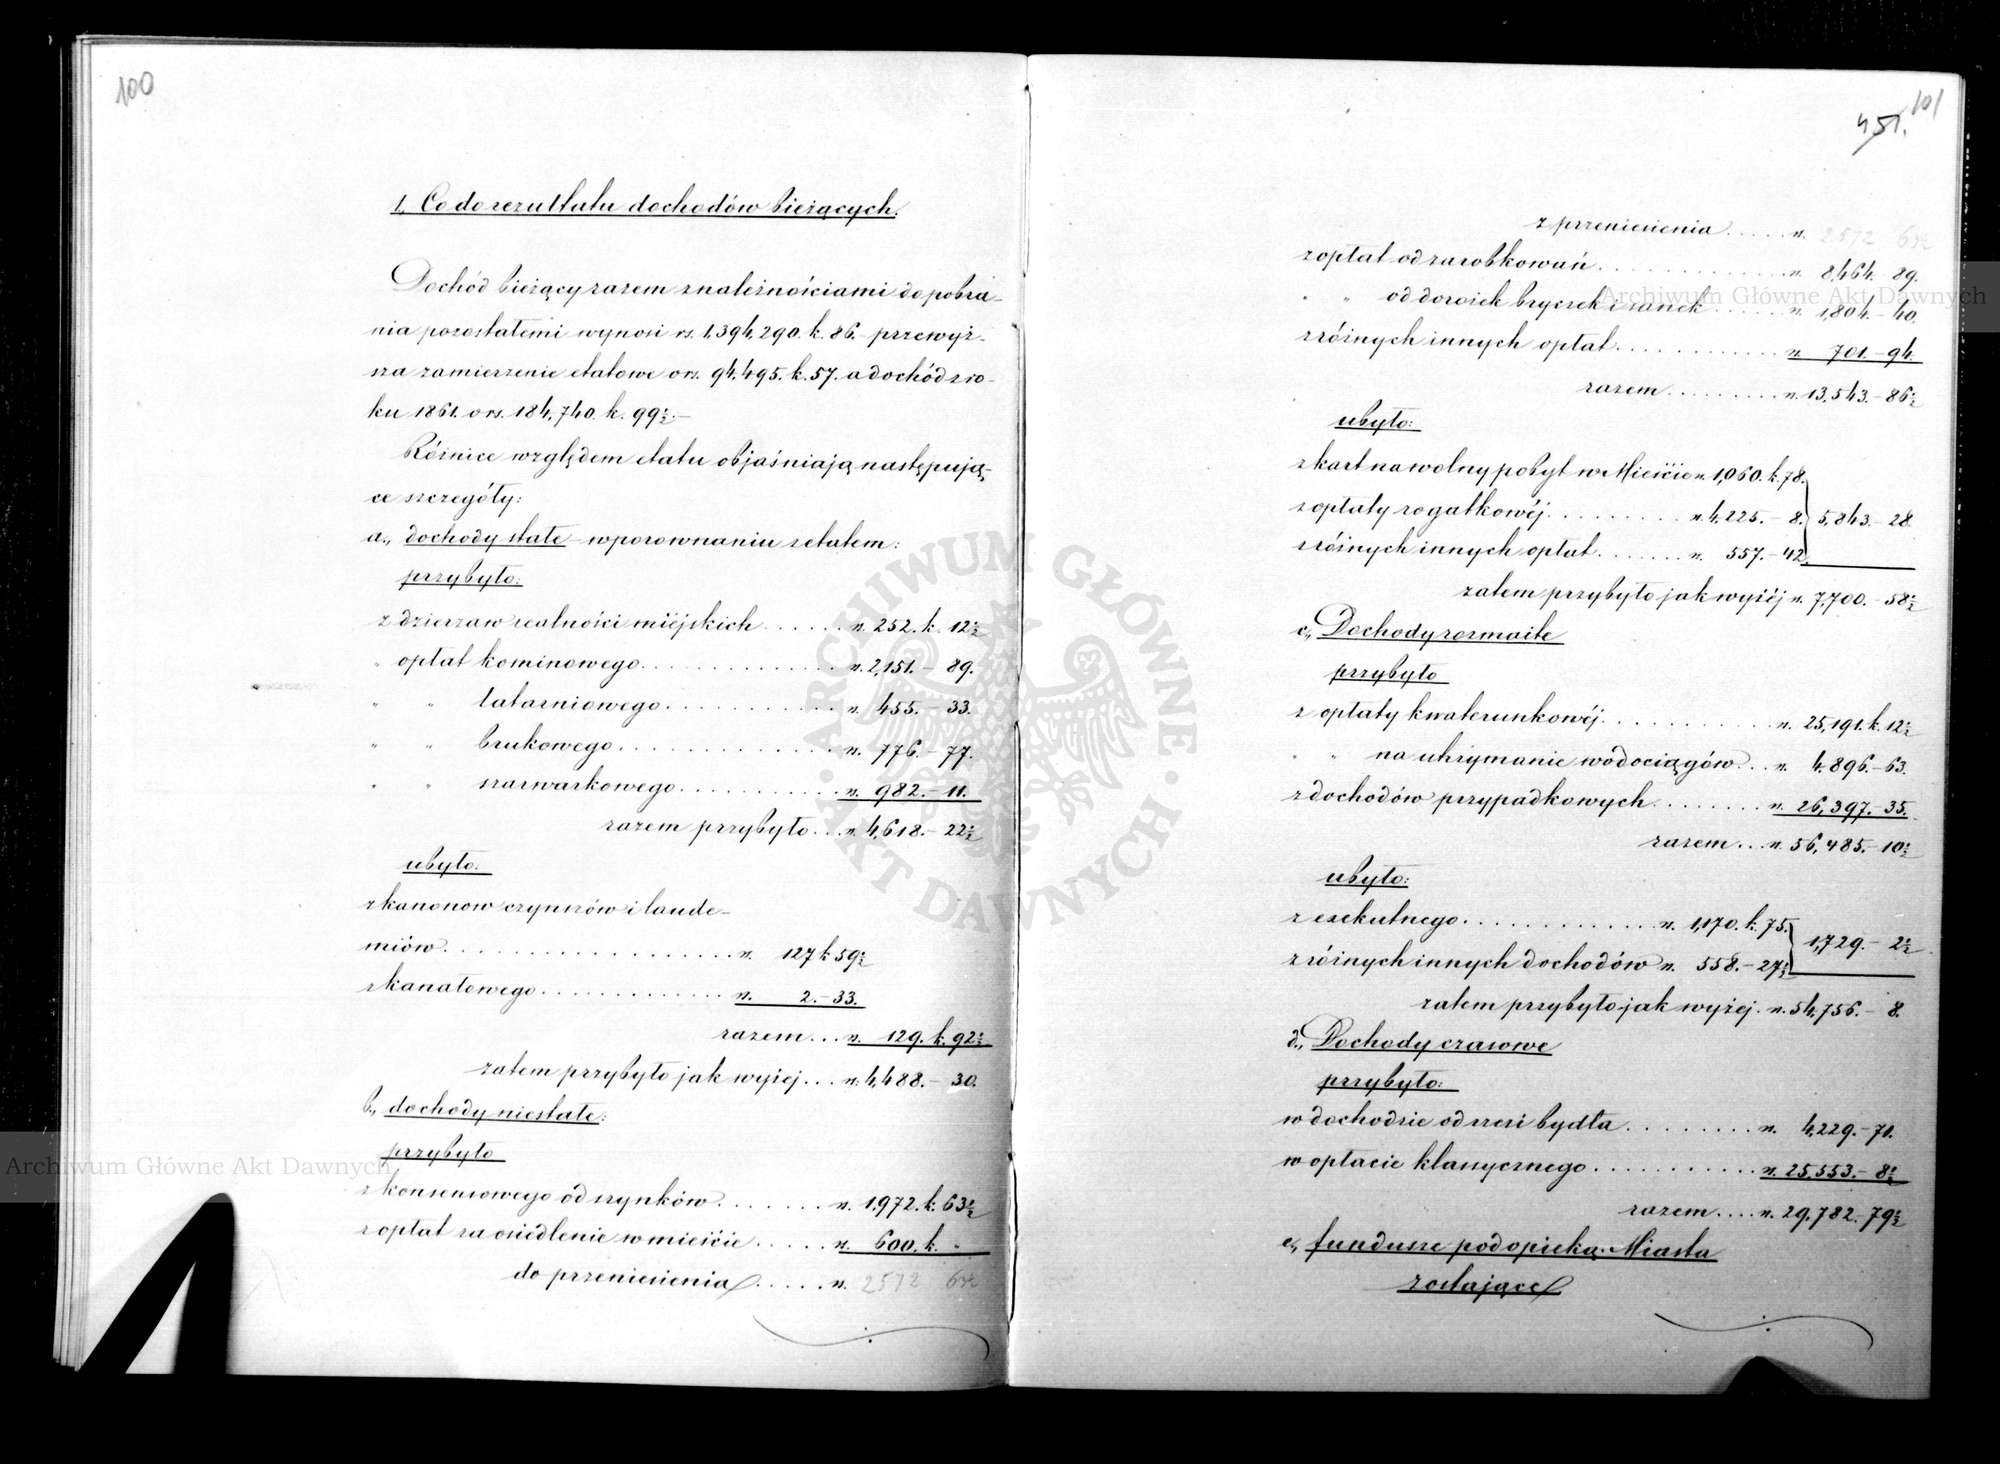 100
1, Co do rezultatu dochodów bieżących.
Dochód bieżący razem z należnościami do pobra-
nia pozostałemi wynosi rs. 1,394,290. k. 86.- przewyż-
sza zamierzenie etatowe o rs. 94,495. k. 57. a dochód z ro-
ku 1861. o rs. 184,740. k. 99½.-
Różnice względem etatu objaśniają następują-
ce szczegóły:
a., dochody stałe w porownaniu z etatem:
przybyło:
z dzierzaw realności miejskich ...... rs. 252. k. 12½
" opłat kominowego ............ rs. 2,151. - 89.
" " latarniowego ............ rs. 455. - 33.
" " brukowego ............ rs. 776. - 77.
" " szarwarkowego ............ rs. 982. - 11.
razem przybyło ... rs. 4,618. - 22½
ubyło:
z kanonow czynszów i laude-
miów ............ rs. 127 k 59½
z kanałowego ............ rs. 2. - 33.
razem ... rs. 129. k. 92½
zatem przybyło jak wyżej ... rs. 4,488. - 30.
b., dochody niestałe:
przybyło
z konsensowego od szynków ....... rs. 1.972. k. 63½
z opłat za osiedlenie w mieście ..... rs. 600. k. "
do przeniesienia ..... rs. 2572 63½
101
451.
z przeniesienia ..... rs. 2572 63½
z opłat od zarobkowań ............ rs. 8,464. 89.
" " od dorożek bryczek i sanek ..... rs. 1,804. - 40.
z różnych innych opłat ............ rs. 701. - 94.
razem ......... rs. 13,543. - 86½
ubyło:
z kart na wolny pobyt w Mieście rs. 1,060. k. 78.
z opłaty rogatkowéj ......... rs. 4,225. - 8. 5,843. - 28.
z różnych innych opłat ...... rs. 557. - 42
zatem przybyło jak wyżéj rs. 7,700. - 58½
c., Dochody rozmaite
przybyło
z opłaty kwaterunkowéj ............ rs. 25,191. k. 12½
" " na utrzymanie wodociągów ... rs. 4,896. - 63.
z dochodów przypadkowych ........ rs. 26,397. - 35.
razem ... rs. 56,485. - 10½
ubyło:
z exekutnego ............ rs. 1,170. k. 75. 1,729. - 2½
z różnych innych dochodów rs. 558. - 27½
zatem przybyło jak wyżej. rs. 54,756. - 8.
d., Dochody czasowe
przybyło:
w dochodzie od rzezi bydła ......... rs. 4,229. - 71.
w opłacie klassycznego ............ rs. 25,553. - 8½
razem .... rs. 29,782. - 79½
e., fundusze pod opieką Miasta
zostające
Archiwum Główne Akt Dawnych
Archiwum Główne Akt Dawnych
ARCHIWUM GŁÓWNE AKT DAWNYCH